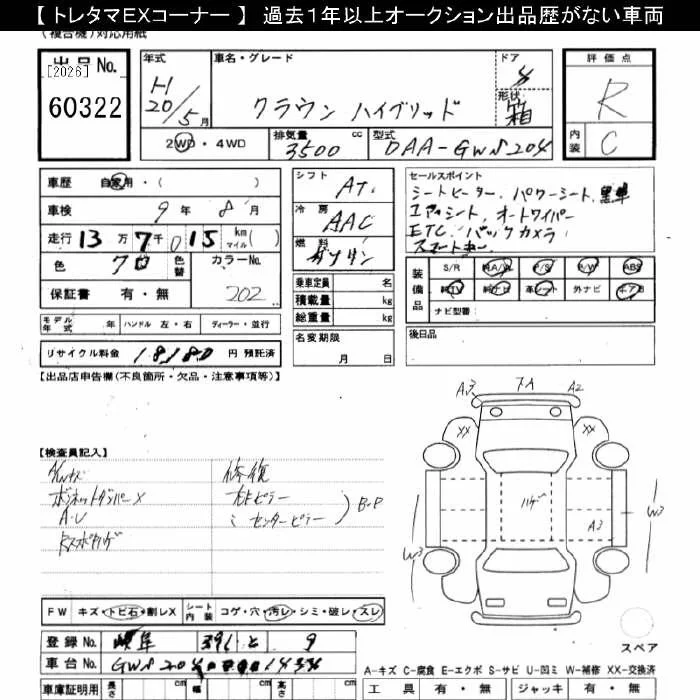 【 トレタマEXコーナー 】 過去1年以上オークション出品歴がない車両
(複合機)対応用紙
出品No.
[2026]
60322
年式
H
20/5月
車名・グレード
クラウン ハイブリッド
ドア
4
形状
箱
評価点
R
内装
C
2WD・4WD
排気量
3500 cc
型式
DAA-GWS204
車歴 自家用・( )
車検 9年 8月
走行 13万7千015 km マイル( )
色 クロ 色替 カラーNo.
保証書 有・無 202
シフト
AT
冷房
AAC
燃料
ガソリン
乗車定員 名
積載量 kg
総重量 kg
名変期限
月 日
セールスポイント
シートヒーター、パワーシート、黒革
エアシート、オートワイパー
ETC、バックカメラ
スマートキー
装備品
S/R A/W P/S P/W ABS
純TV 純ナビ 革シート 外ナビ エアB
ナビ型番
後日品
モデル年式 年 ハンドル 左・右 ディーラー・並行
リサイクル料金 18180 円 預託済
【出品店申告欄(不良箇所・欠品・注意事項等)】
【検査員記入】
ボンネットダンパーX
A-U
修復
右ピラー
センターピラー
B・P
A3 フA A2
XX XX
ハゲ
A3
W3 W3
FW キズ・トビ石・割レX シート内装 コゲ・穴・汚レ・シミ・破レ・スレ
登録No. 岐阜 391 と 9
車台No. GWS204
スペア
A-キズ C-腐食 E-エクボ S-サビ U-凹ミ W-補修 XX-交換済
車庫証明用 長さ cm 幅 cm 高さ cm
工具 有・無 ジャッキ 有・無